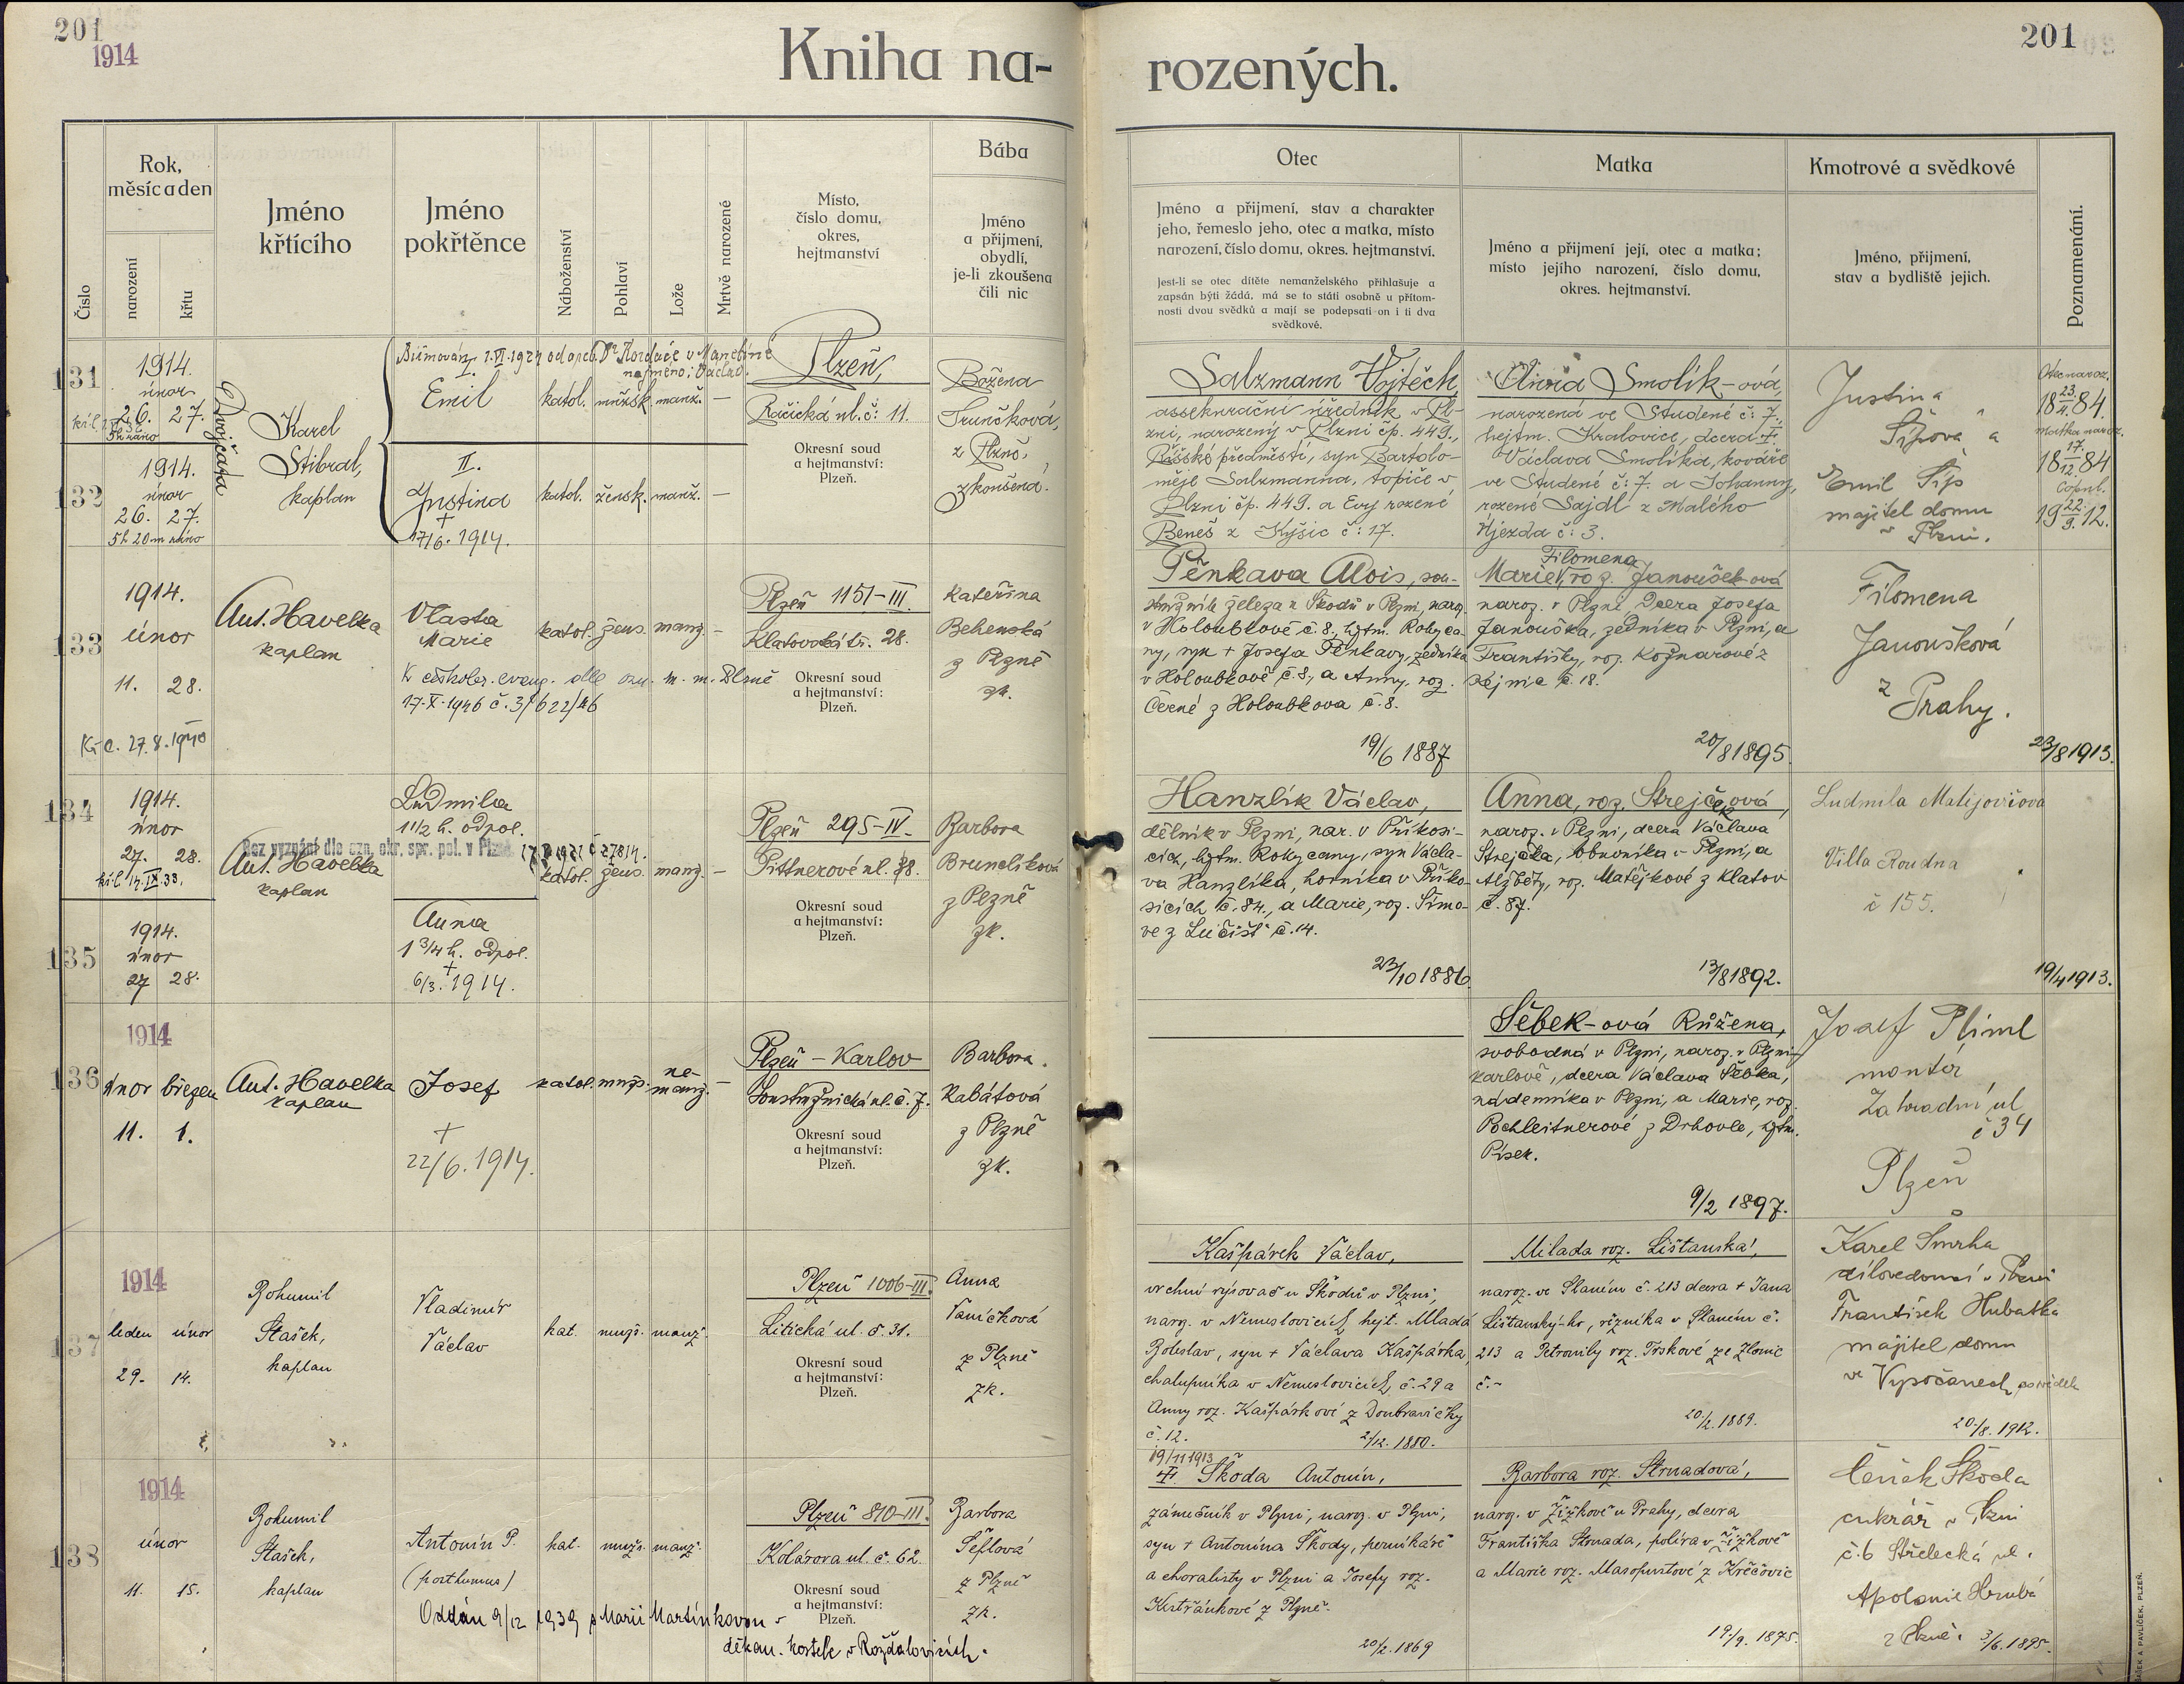 201
1914
Kniha na-
rozených.
201
Číslo
Rok,
měsíc a den
narození
křtu
Jméno
křtícího
Jméno
pokřtěnce
Náboženství
Pohlaví
Lože
Mrtvě narozené
Místo,
číslo domu,
okres,
hejtmanství
Bába
Jméno
a přijmení,
obydlí,
je-li zkoušena
čili nic
Otec
Jméno a přijmení, stav a charakter
jeho, řemeslo jeho, otec a matka, místo
narození, číslo domu, okres. hejtmanství.
Jest-li se otec dítěte nemanželského přihlašuje a
zapsán býti žádá, má se to státi osobně u přítom-
nosti dvou svědků a mají se podepsati on i ti dva
svědkové.
Matka
Jméno a přijmení její, otec a matka;
místo jejího narození, číslo domu,
okres. hejtmanství.
Kmotrové a svědkové
Jméno, přijmení,
stav a bydliště jejich.
Poznamenání.
131
1914.
únor
26. 27.
5h ráno
Dvojčata
Karel
Stibral,
kaplan
Biřmován 1.VI.1924 od arcib. Dr Kordače v Manětíně
na jméno: Václav.
I.
Emil
katol. mužsk. manž. —
Plzeň,
Račická ul. č: 11.
Okresní soud
a hejtmanství:
Plzeň.
Božena
z Plzně,
zkoušená.
132
1914.
únor
26. 27.
5h 20m ráno
II.
Justina
+
17/6. 1914.
katol. žensk. manž. —
Salzmann Vojtěch
assekurační úředník v Pl-
zni, narozený v Plzni čp. 449.,
Říšské předměstí, syn Bartolo-
měje Salzmanna, topiče v
Plzni čp. 449. a Evy rozené
Beneš z Kyšic č: 17.
Anna Smolík-ová,
narozená ve Studené č: 7.
hejtm. Kralovice, dcera +
Václava Smolíka, kováře
ve Studené č: 7. a Johanny,
rozené Sajdl z Malého
Újezda č: 3.
Justina
Šípová a
Emil Šíp
majitel domu
v Plzni.
Otec naroz.
18 23/4. 84.
matka naroz.
18 17./12. 84
Copul.
19 22./9. 12.
133
1914.
únor
11. 28.
Ant. Havelka
kaplan
Vlasta
Marie
katol. žens. manž. —
K českobr. evang. dle ozn. m. m. Plzně
17.X.1946 č. 31622/46
27.8.1940
Plzeň 1151-III.
Klatovská tř. 28.
Okresní soud
a hejtmanství:
Plzeň.
Kateřina
Behenská
z Plzně
zk.
Pěnkava Alois, sou-
stružník železa u Škodů v Plzni, naroz.
v Holoubkově č. 8., hjtm. Rokyca-
ny, syn + Josefa Pěnkavy, zedníka
v Holoubkově č. 8., a Anny, roz.
Černé z Holoubkova č. 8.
19/6 1887
Filomena
Marie, roz. Janoušek-ová
naroz. v Plzni, dcera Josefa
Janouška, zedníka v Plzni, a
Františky, roz. Kožnarové z
č. 18.
20/8 1895.
Filomena
Janoušková
z
Prahy.
23/8 1913.
134
1914.
únor
27. 28.
Bez vyznání dle ozn. okr. spr. pol. v Plzni
Ant. Havelka
kaplan
Ludmila
1 1/2 h. odpol.
katol. žens. manž. —
Plzeň 295-IV.
Pittnerové ul. 28.
Okresní soud
a hejtmanství:
Plzeň.
Barbora
Brunclíková
z Plzně
zk.
135
1914.
únor
27 28.
Anna
1 3/4 h. odpol.
+
6/3. 1914.
Hanzlík Václav,
dělník v Plzni, nar. v Příkosi-
cích, hjtm. Rokycany, syn Václa-
va Hanzlíka, horníka v Příko-
sicích č. 84., a Marie, roz. Šímo-
vé z Lučišť č. 14.
23/10 1886.
Anna, roz. Strejčková,
naroz. v Plzni, dcera Václava
Strejčka, obuvníka v Plzni, a
Alžběty, roz. Matějkové z Klatov
č. 87.
13/8 1892.
Ludmila Matijovičová
Villa Roudna
č 155.
19/4 1913.
136
1914
únor březen
11. 1.
Ant. Havelka
kaplan
Josef
+
22/6. 1914.
katol. mužs. ne-
manž. —
Plzeň - Karlov
Soustružnická ul. č. 7.
Okresní soud
a hejtmanství:
Plzeň.
Barbora
Rabátová
z Plzně
zk.
Šebek-ová Růžena,
svobodná v Plzni, naroz. v Plzni-
Karlově, dcera Václava Šebka,
nádenníka v Plzni, a Marie, roz.
Pochleitnerové z Drhovle, hjtm.
Písek.
9/2 1897.
Josef Pliml
montér
Zahradní ul
č 34
Plzeň
137
1914
leden únor
29. 14.
Bohumil
Stašek,
kaplan
Vladimír
Václav
kat. mužs. manž.
Plzeň 1006-III.
Litická ul. č. 31.
Okresní soud
a hejtmanství:
Plzeň.
Anna
Vaníčková
z Plzně
zk.
Kašpárek Václav,
vrchní rýsovač u Škodů v Plzni,
naroz. v Němeslovicích, hejt. Mladá
Boleslav, syn + Václava Kašpárka,
chalupníka v Němeslovicích, č. 29 a
Anny roz. Kašpárkové z Doubravičky
č. 12.
2/12. 1880.
Milada roz. Lištanská,
naroz. ve Slaném č. 213 dcera + Jana
Lištanský-ho, řezníka v Slaném č.
213 a Petronily roz. Trskové ze Zlonic
č. -
20./2. 1889.
Karel Smrha
dílovedoucí v Plzni
František Hubatka
majitel domu
ve Vysočanech
20./8. 1912.
138
1914
únor
11. 15.
Bohumil
Stašek,
kaplan
Antonín P.
(posthumus)
kat. mužs. manž.
Oddán 9/12 1939 s Marií Martínkovou v
děkan. kostele v Rožďalovicích.
Plzeň 810-III.
Kolárova ul. č. 62.
Okresní soud
a hejtmanství:
Plzeň.
Barbora
Šeflová
z Plzně
zk.
19/11 1913
+ Škoda Antonín,
zámečník v Plzni, naroz. v Plzni,
syn + Antonína Škody, perníkáře
a choralisty v Plzni a Josefy roz.
Kristiánkové z Plzně.
20/2. 1869
Barbora roz. Strnadová,
naroz. v Žižkově u Prahy, dcera
Františka Strnada, políra v Žižkově
a Marie roz. Masopustové z Křečovic
19./9. 1875.
Čeněk Škoda
cukrář v Plzni
č. 6 Střelecká ul.
Apolonie Hrubá
z Plzně. 3/6. 1895.